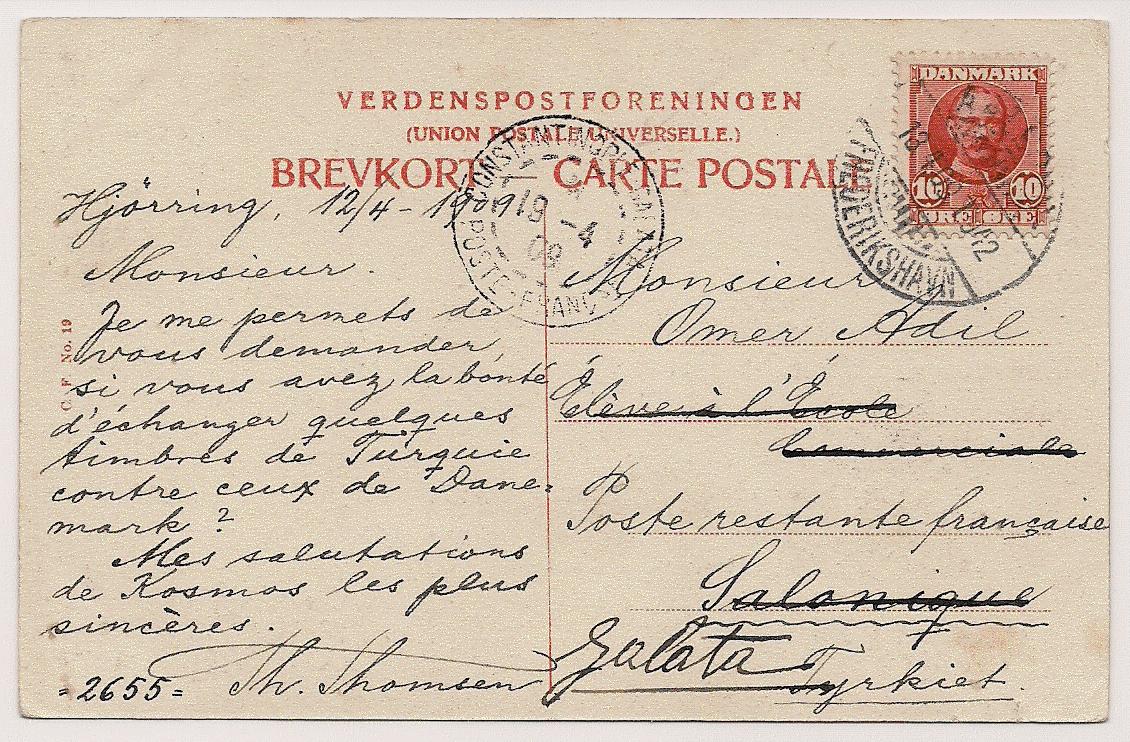 VERDENSPOSTFORENINGEN
(UNION POSTALE UNIVERSELLE.)
BREVKORT — CARTE POSTALE
DANMARK
10 10
ØRE ØRE
FREDERIKSHAVN
CONSTANTINOPLE GALATA
19 -4
09
POSTE FRANÇAISE
C.A.F. No. 19
Hjörring, 12/4-1909
Monsieur.
Je me permets de
vous demander,
si vous avez la bonté
d'échanger quelques
timbres de Türquie
contre ceux de Dane=
mark?
Mes salutations
de Kosmos les plus
sincères.
=2655= Th. Thomsen
Monsieur
Omer Adil
Élève à l'École
Commerciale
Poste restante française
Salonique
Galata
Tyrkiet.